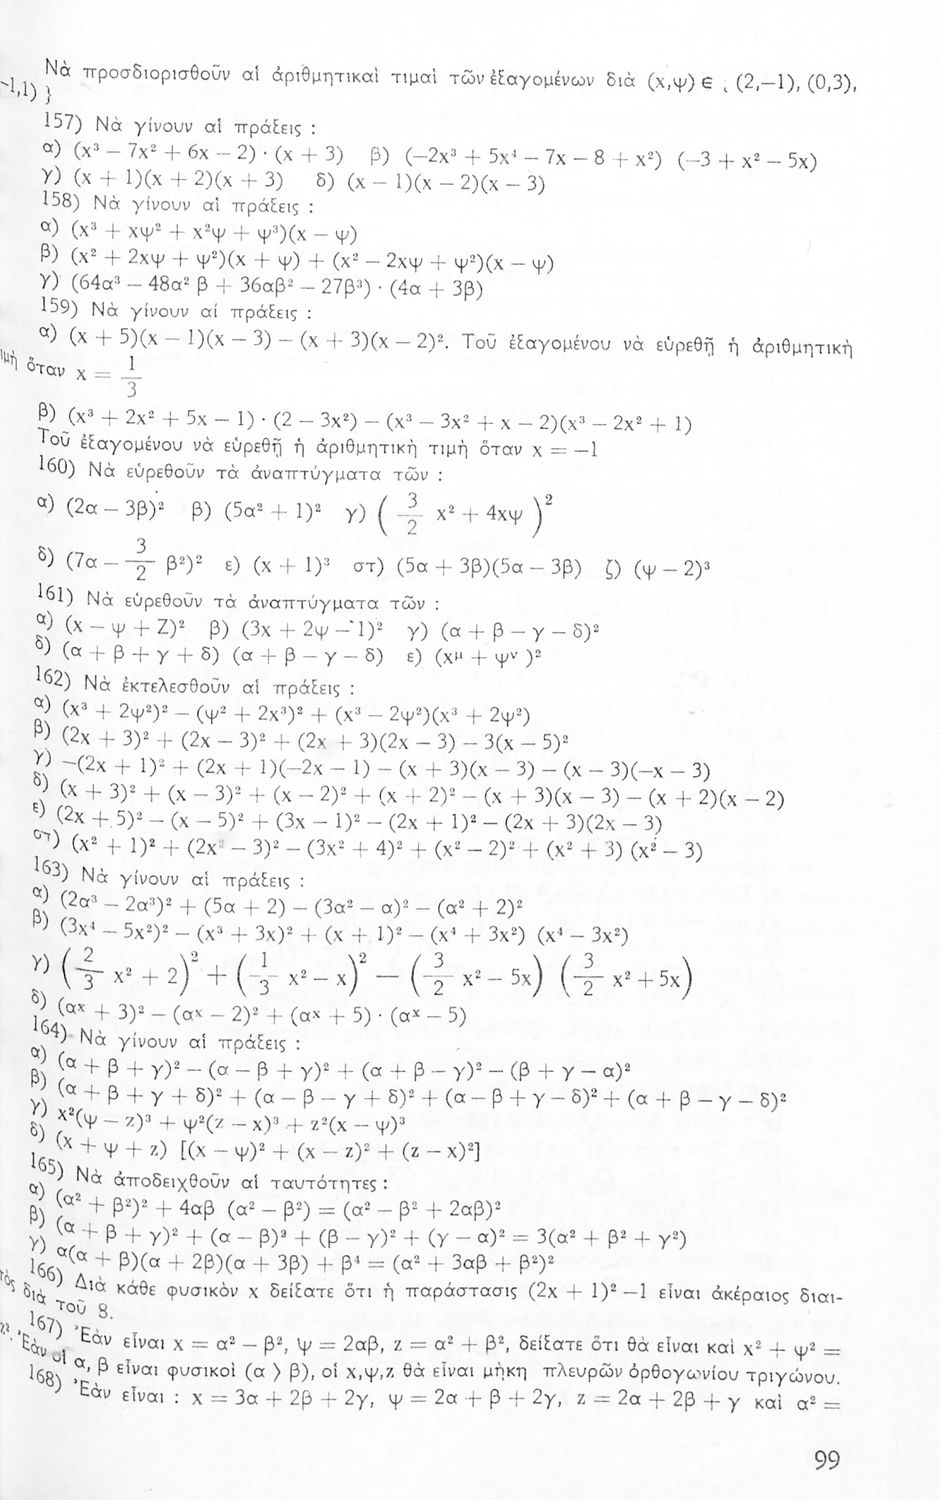 Νὰ προσδιορισθοῦν αἱ ἀριθμητικαὶ τιμαὶ τῶν ἐξαγομένων διὰ (x,ψ) ∈ { (2,—1), (0,3),
-1,1) }
157) Νὰ γίνουν αἱ πράξεις :
α) (x³ — 7x² + 6x — 2) · (x + 3) β) (—2x³ + 5x⁴ — 7x — 8 + x²) (—3 + x² — 5x)
γ) (x + 1)(x + 2)(x + 3) δ) (x — 1)(x — 2)(x — 3)
158) Νὰ γίνουν αἱ πράξεις :
α) (x³ + xψ² + x²ψ + ψ³)(x — ψ)
β) (x² + 2xψ + ψ²)(x + ψ) + (x² — 2xψ + ψ²)(x — ψ)
γ) (64α³ — 48α² β + 36αβ² — 27β³) · (4α + 3β)
159) Νὰ γίνουν αἱ πράξεις :
α) (x + 5)(x — 1)(x — 3) — (x + 3)(x — 2)². Τοῦ ἐξαγομένου νὰ εὑρεθῇ ἡ ἀριθμητικὴ
ιμὴ ὅταν x = 1/3
β) (x³ + 2x² + 5x — 1) · (2 — 3x²) — (x³ — 3x² + x — 2)(x³ — 2x² + 1)
Τοῦ ἐξαγομένου νὰ εὑρεθῇ ἡ ἀριθμητικὴ τιμὴ ὅταν x = —1
160) Νὰ εὑρεθοῦν τὰ ἀναπτύγματα τῶν :
α) (2α — 3β)² β) (5α² + 1)² γ) ( 3/2 x² + 4xψ )²
δ) (7α — 3/2 β²)² ε) (x + 1)³ στ) (5α + 3β)(5α — 3β) ζ) (ψ — 2)³
161) Νὰ εὑρεθοῦν τὰ ἀναπτύγματα τῶν :
α) (x — ψ + Z)² β) (3x + 2ψ — 1)² γ) (α + β — γ — δ)²
δ) (α + β + γ + δ) (α + β — γ — δ) ε) (xᵘ + ψᵛ )²
162) Νὰ ἐκτελεσθοῦν αἱ πράξεις :
α) (x³ + 2ψ²)² — (ψ² + 2x³)² + (x³ — 2ψ²)(x³ + 2ψ²)
β) (2x + 3)² + (2x — 3)² + (2x + 3)(2x — 3) — 3(x — 5)²
γ) —(2x + 1)² + (2x + 1)(—2x — 1) — (x + 3)(x — 3) — (x — 3)(—x — 3)
δ) (x + 3)² + (x — 3)² + (x — 2)² + (x + 2)² — (x + 3)(x — 3) — (x + 2)(x — 2)
ε) (2x + 5)² — (x — 5)² + (3x — 1)² — (2x + 1)² — (2x + 3)(2x — 3)
στ) (x² + 1)² + (2x² — 3)² — (3x² + 4)² + (x² — 2)² + (x² + 3) (x² — 3)
163) Νὰ γίνουν αἱ πράξεις :
α) (2α³ — 2α³)² + (5α + 2) — (3α² — α)² — (α² + 2)²
β) (3x⁴ — 5x²)² — (x³ + 3x)² + (x + 1)² — (x⁴ + 3x²) (x⁴ — 3x²)
γ) ( 2/3 x² + 2)² + ( 1/3 x² — x)² — ( 3/2 x² — 5x) ( 3/2 x² + 5x)
δ) (αˣ + 3)² — (αˣ — 2)² + (αˣ + 5) · (αˣ — 5)
164) Νὰ γίνουν αἱ πράξεις :
α) (α + β + γ)² — (α — β + γ)² + (α + β — γ)² — (β + γ — α)²
β) (α + β + γ + δ)² + (α — β — γ + δ)² + (α — β + γ — δ)² + (α + β — γ — δ)²
γ) x²(ψ — z)³ + ψ²(z — x)³ + z²(x — ψ)³
δ) (x + ψ + z) [(x — ψ)² + (x — z)² + (z — x)²]
165) Νὰ ἀποδειχθοῦν αἱ ταυτότητες :
α) (α² + β²)² + 4αβ (α² — β²) = (α² — β² + 2αβ)²
β) (α + β + γ)² + (α — β)² + (β — γ)² + (γ — α)² = 3(α² + β² + γ²)
γ) α(α + β)(α + 2β)(α + 3β) + β⁴ = (α² + 3αβ + β²)²
166) Διὰ κάθε φυσικὸν x δείξατε ὅτι ἡ παράστασις (2x + 1)² —1 εἶναι ἀκέραιος διαι-
τὸς διὰ τοῦ 8.
167) Ἐὰν εἶναι x = α² — β², ψ = 2αβ, z = α² + β², δείξατε ὅτι θὰ εἶναι καὶ x² + ψ² =
z². Ἐὰν οἱ α, β εἶναι φυσικοὶ (α > β), οἱ x,ψ,z θὰ εἶναι μήκη πλευρῶν ὀρθογωνίου τριγώνου.
168) Ἐὰν εἶναι : x = 3α + 2β + 2γ, ψ = 2α + β + 2γ, z = 2α + 2β + γ καὶ α² =
99